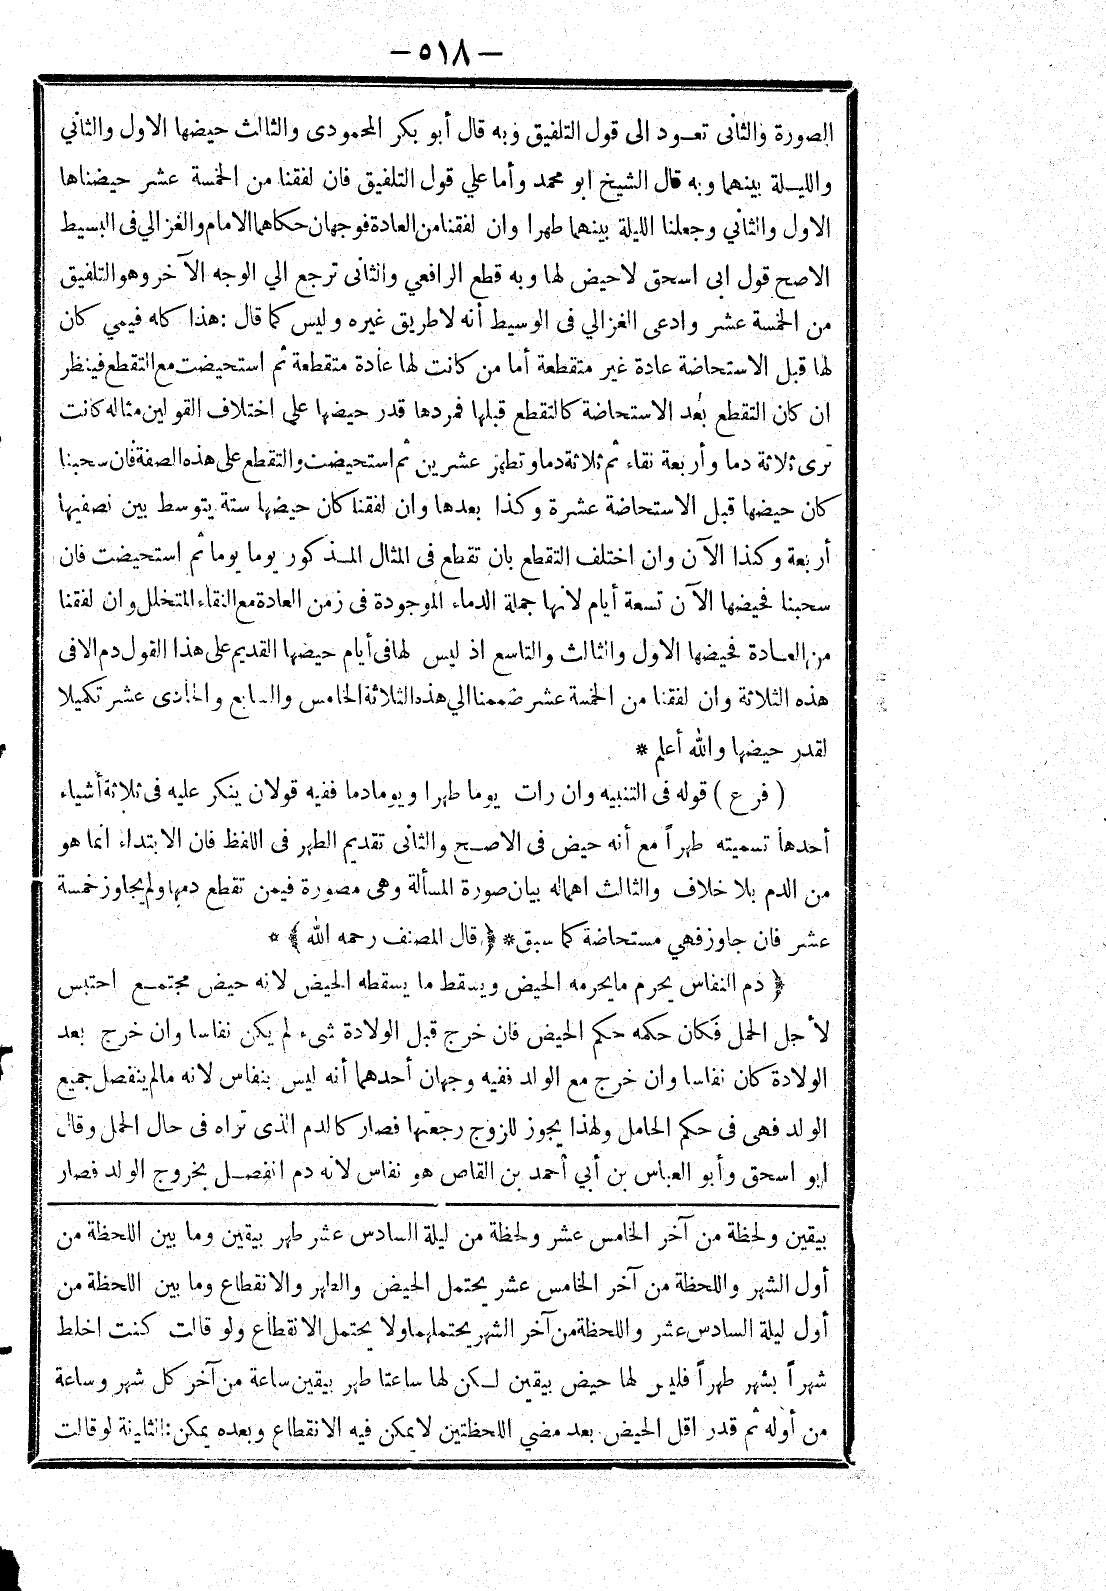 — ٥١٨ —
الصورة والثاني تعـود الى قول التلفيق وبه قال أبو بكر المحمودى والثالث حيضها الاول والثاني
والليـلة بينهما وبه قال الشيخ ابو محمد وأما علي قول التلفيق فان لفقنا من الخمسة عشر حيضناها
الاول والثاني وجعلنا الليلة بينهما طهرا وان لفقنا من العادة فوجهان حكاهما الامام والغزالي في البسيط
الاصح قول ابى اسحق لاحيض لها وبه قطع الرافعي والثانى ترجع الي الوجه الآخر وهو التلفيق
من الخمسة عشر وادعى الغزالي فى الوسيط أنه لاطريق غيره وليس كما قال : هذا كله فيمي كان
لها قبل الاستحاضة عادة غير متقطعة أما من كانت لها عادة متقطعة ثم استحيضت مع التقطع فينظر
ان كان التقطع بعد الاستحاضة كالتقطع قبلها فمردها قدر حيضها علي اختلاف القولين مثاله كانت
ترى ثلاثة دما وأربعة نقاء ثم ثلاثة دما وتطهر عشرين ثم استحيضت والتقطع على هذه الصفة فان سحبنا
كان حيضها قبل الاستحاضة عشرة وكذا بعدها وان لفقنا كان حيضها ستة يتوسط بين نصفيها
أربعة وكذا الآن وان اختلف التقطع بان تقطع فى المثال المـذكور يوما يوما ثم استحيضت فان
سحبنا فحيضها الآن تسعة أيام لانها جملة الدماء الموجودة فى زمن العادة مع النقاء المتخلل وان لفقنا
من العـادة فحيضها الاول والثالث والتاسع اذ ليس لها فى أيام حيضها القديم على هذا القول دم الا فى
هذه الثلاثة وان لفقنا من الخمسة عشر ضممنا الي هذه الثلاثة الخامس والسابع والحادى عشر تكميلا
لقدر حيضها والله أعلم *
( فرع ) قوله فى التنبيه وان رات يوما طهرا ويوما دما ففيه قولان ينكر عليه فى ثلاثة أشياء
أحدها تسميته طهراً مع أنه حيض فى الاصـح والثانى تقديم الطهر فى اللفظ فان الابتداء انما هو
من الدم بلا خلاف والثالث اهماله بيان صورة المسألة وهى مصورة فيمن تقطع دمها ولم يجاوز خمسة
عشر فان جاوز فهي مستحاضة كما سبق * ﴿ قال المصنف رحمه الله ﴾ *
﴿ دم النفاس يحرم مايحرمه الحيض ويسقط ما يسقطه الحيض لانه حيض مجتمـع احتبس
لأجل الحمل فكان حكمه حكم الحيض فان خرج قبل الولادة شىء لم يكن نفاسا وان خرج بعد
الولادة كان نفاسا وان خرج مع الولد ففيه وجهان أحدهما أنه ليس بنفاس لانه مالم ينفصل جميع
الولد فهى فى حكم الحامل ولهذا يجوز للزوج رجعتها فصار كالدم الذى تراه فى حال الحمل وقال
ابو اسحق وأبو العباس بن أبي أحمد بن القاص هو نفاس لانه دم انفصـل بخروج الولد فصار
بيقين ولحظة من آخر الخامس عشر ولحظة من ليلة السادس عشر طهر بيقين وما بين اللحظة من
أول الشهر واللحظة من آخر الخامس عشر يحتمل الحيض والطهر والانقطاع وما بين اللحظة من
أول ليلة السادس عشر واللحظة من آخر الشهر يحتملهما ولا يحتمل الانقطاع ولو قالت كنت اخلط
شهراً بشهر طهراً فليس لها حيض بيقين لـكن لها ساعتا طهر بيقين ساعة من آخر كل شهر وساعة
من أوله ثم قدر اقل الحيض بعد مضي اللحظتين لايمكن فيه الانقطاع وبعده يمكن : الثانية لو قالت